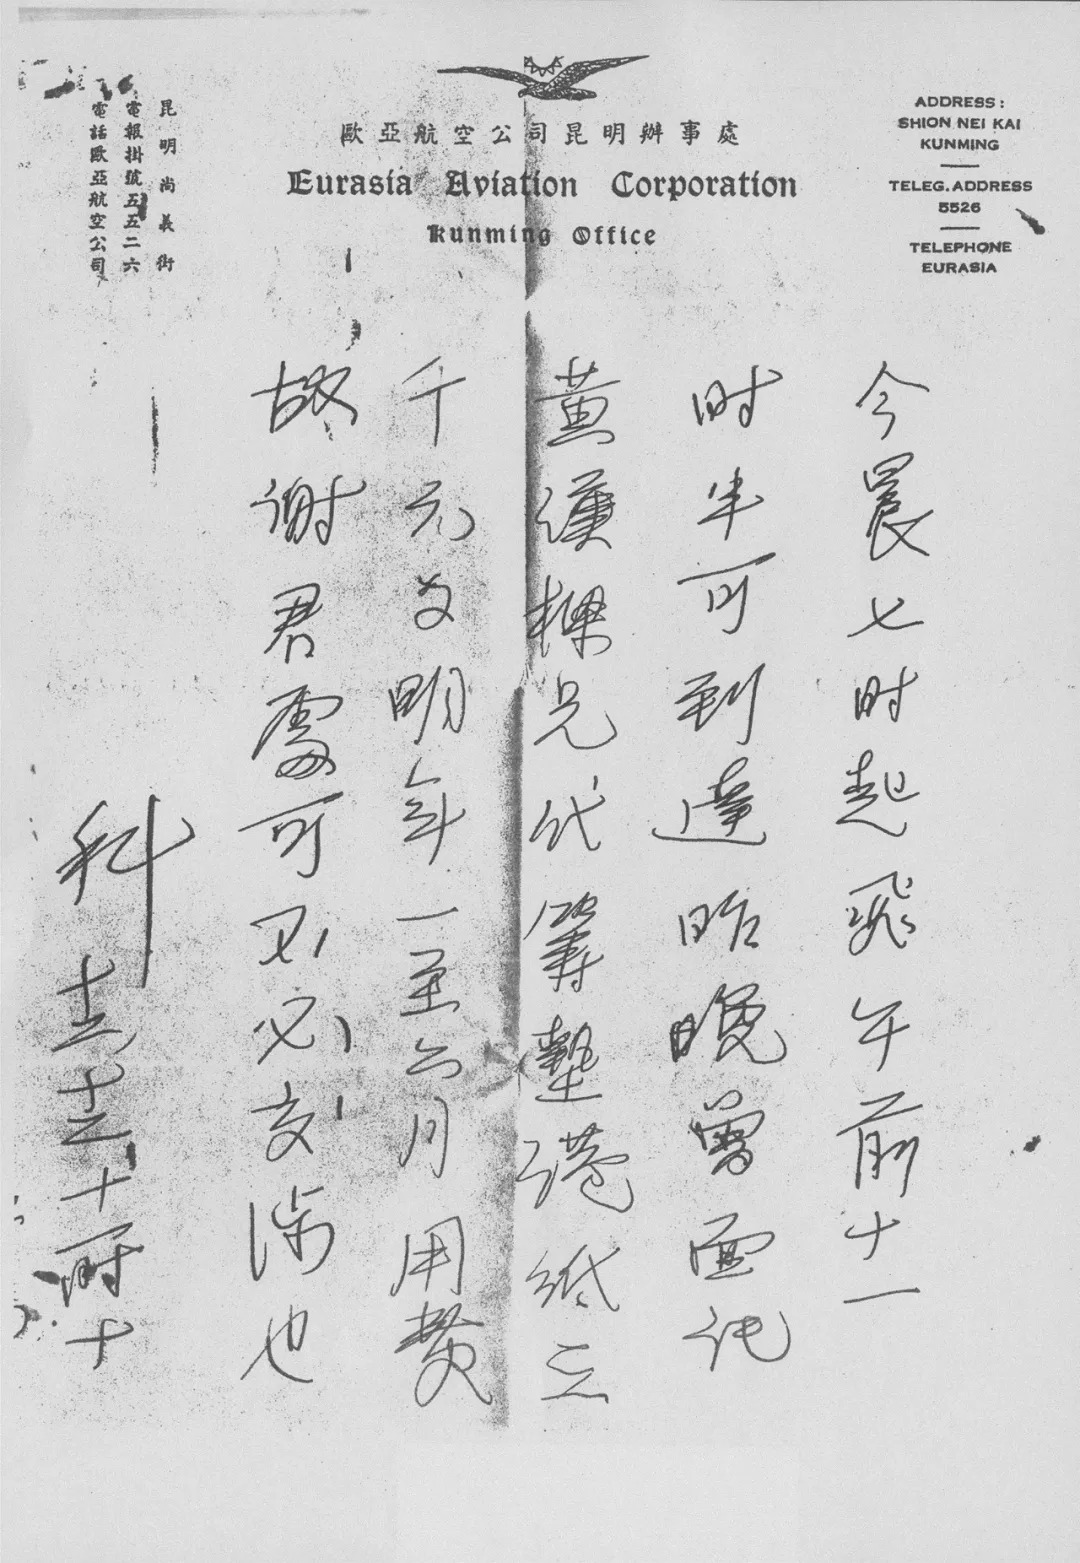 歐亞航空公司昆明辦事處
Eurasia Aviation Corporation
Kunming Office
ADDRESS:
SHION NEI KAI
KUNMING
TELEG. ADDRESS
5526
TELEPHONE
EURASIA
昆明尚義街
電報掛號五五二六
電話歐亞航空公司
今晨七时起飛午前十一
时半可到達昨晚曾面託
黄漢樑兄代籌墊港紙三
千元為明年一至六月用費
故谢君處可不必交涉也
科